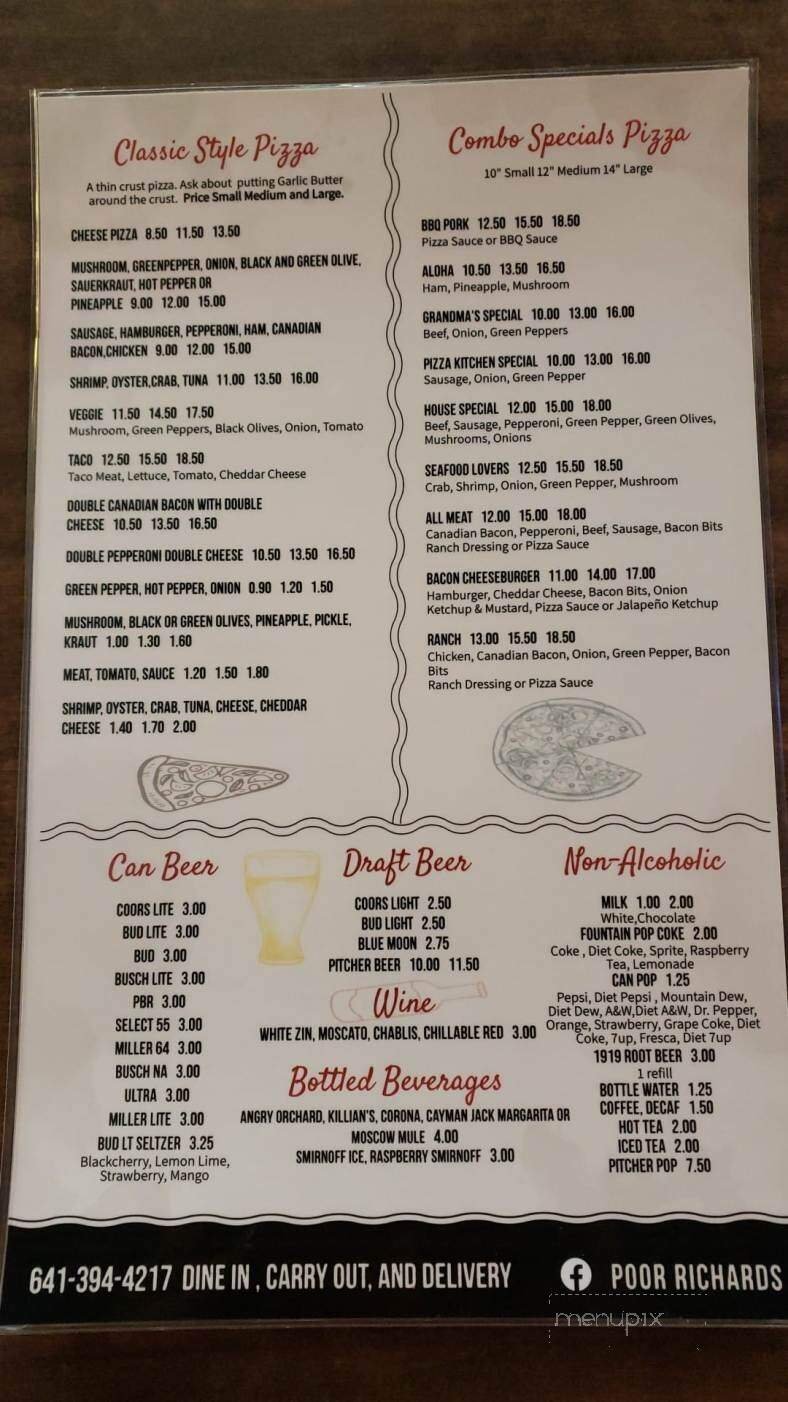 Classic Style Pizza
A thin crust pizza. Ask about putting Garlic Butter
around the crust. Price Small Medium and Large.
CHEESE PIZZA 8.50 11.50 13.50
MUSHROOM, GREENPEPPER, ONION, BLACK AND GREEN OLIVE,
SAUERKRAUT, HOT PEPPER OR
PINEAPPLE 9.00 12.00 15.00
SAUSAGE, HAMBURGER, PEPPERONI, HAM, CANADIAN
BACON,CHICKEN 9.00 12.00 15.00
SHRIMP, OYSTER,CRAB, TUNA 11.00 13.50 16.00
VEGGIE 11.50 14.50 17.50
Mushroom, Green Peppers, Black Olives, Onion, Tomato
TACO 12.50 15.50 18.50
Taco Meat, Lettuce, Tomato, Cheddar Cheese
DOUBLE CANADIAN BACON WITH DOUBLE
CHEESE 10.50 13.50 16.50
DOUBLE PEPPERONI DOUBLE CHEESE 10.50 13.50 16.50
GREEN PEPPER, HOT PEPPER, ONION 0.90 1.20 1.50
MUSHROOM, BLACK OR GREEN OLIVES, PINEAPPLE, PICKLE,
KRAUT 1.00 1.30 1.60
MEAT, TOMATO, SAUCE 1.20 1.50 1.80
SHRIMP, OYSTER, CRAB, TUNA, CHEESE, CHEDDAR
CHEESE 1.40 1.70 2.00
Combo Specials Pizza
10" Small 12" Medium 14" Large
BBQ PORK 12.50 15.50 18.50
Pizza Sauce or BBQ Sauce
ALOHA 10.50 13.50 16.50
Ham, Pineapple, Mushroom
GRANDMA'S SPECIAL 10.00 13.00 16.00
Beef, Onion, Green Peppers
PIZZA KITCHEN SPECIAL 10.00 13.00 16.00
Sausage, Onion, Green Pepper
HOUSE SPECIAL 12.00 15.00 18.00
Beef, Sausage, Pepperoni, Green Pepper, Green Olives,
Mushrooms, Onions
SEAFOOD LOVERS 12.50 15.50 18.50
Crab, Shrimp, Onion, Green Pepper, Mushroom
ALL MEAT 12.00 15.00 18.00
Canadian Bacon, Pepperoni, Beef, Sausage, Bacon Bits
Ranch Dressing or Pizza Sauce
BACON CHEESEBURGER 11.00 14.00 17.00
Hamburger, Cheddar Cheese, Bacon Bits, Onion
Ketchup & Mustard, Pizza Sauce or Jalapeño Ketchup
RANCH 13.00 15.50 18.50
Chicken, Canadian Bacon, Onion, Green Pepper, Bacon
Bits
Ranch Dressing or Pizza Sauce
Can Beer
COORS LITE 3.00
BUD LITE 3.00
BUD 3.00
BUSCH LITE 3.00
PBR 3.00
SELECT 55 3.00
MILLER 64 3.00
BUSCH NA 3.00
ULTRA 3.00
MILLER LITE 3.00
BUD LT SELTZER 3.25
Blackcherry, Lemon Lime,
Strawberry, Mango
Draft Beer
COORS LIGHT 2.50
BUD LIGHT 2.50
BLUE MOON 2.75
PITCHER BEER 10.00 11.50
Wine
WHITE ZIN, MOSCATO, CHABLIS, CHILLABLE RED 3.00
Bottled Beverages
ANGRY ORCHARD, KILLIAN'S, CORONA, CAYMAN JACK MARGARITA OR
MOSCOW MULE 4.00
SMIRNOFF ICE, RASPBERRY SMIRNOFF 3.00
Non-Alcoholic
MILK 1.00 2.00
White,Chocolate
FOUNTAIN POP COKE 2.00
Coke , Diet Coke, Sprite, Raspberry
Tea, Lemonade
CAN POP 1.25
Pepsi, Diet Pepsi , Mountain Dew,
Diet Dew, A&W,Diet A&W, Dr. Pepper,
Orange, Strawberry, Grape Coke, Diet
Coke, 7up, Fresca, Diet 7up
1919 ROOT BEER 3.00
1 refill
BOTTLE WATER 1.25
COFFEE, DECAF 1.50
HOT TEA 2.00
ICED TEA 2.00
PITCHER POP 7.50
641-394-4217 DINE IN , CARRY OUT, AND DELIVERY
POOR RICHARDS
menupix